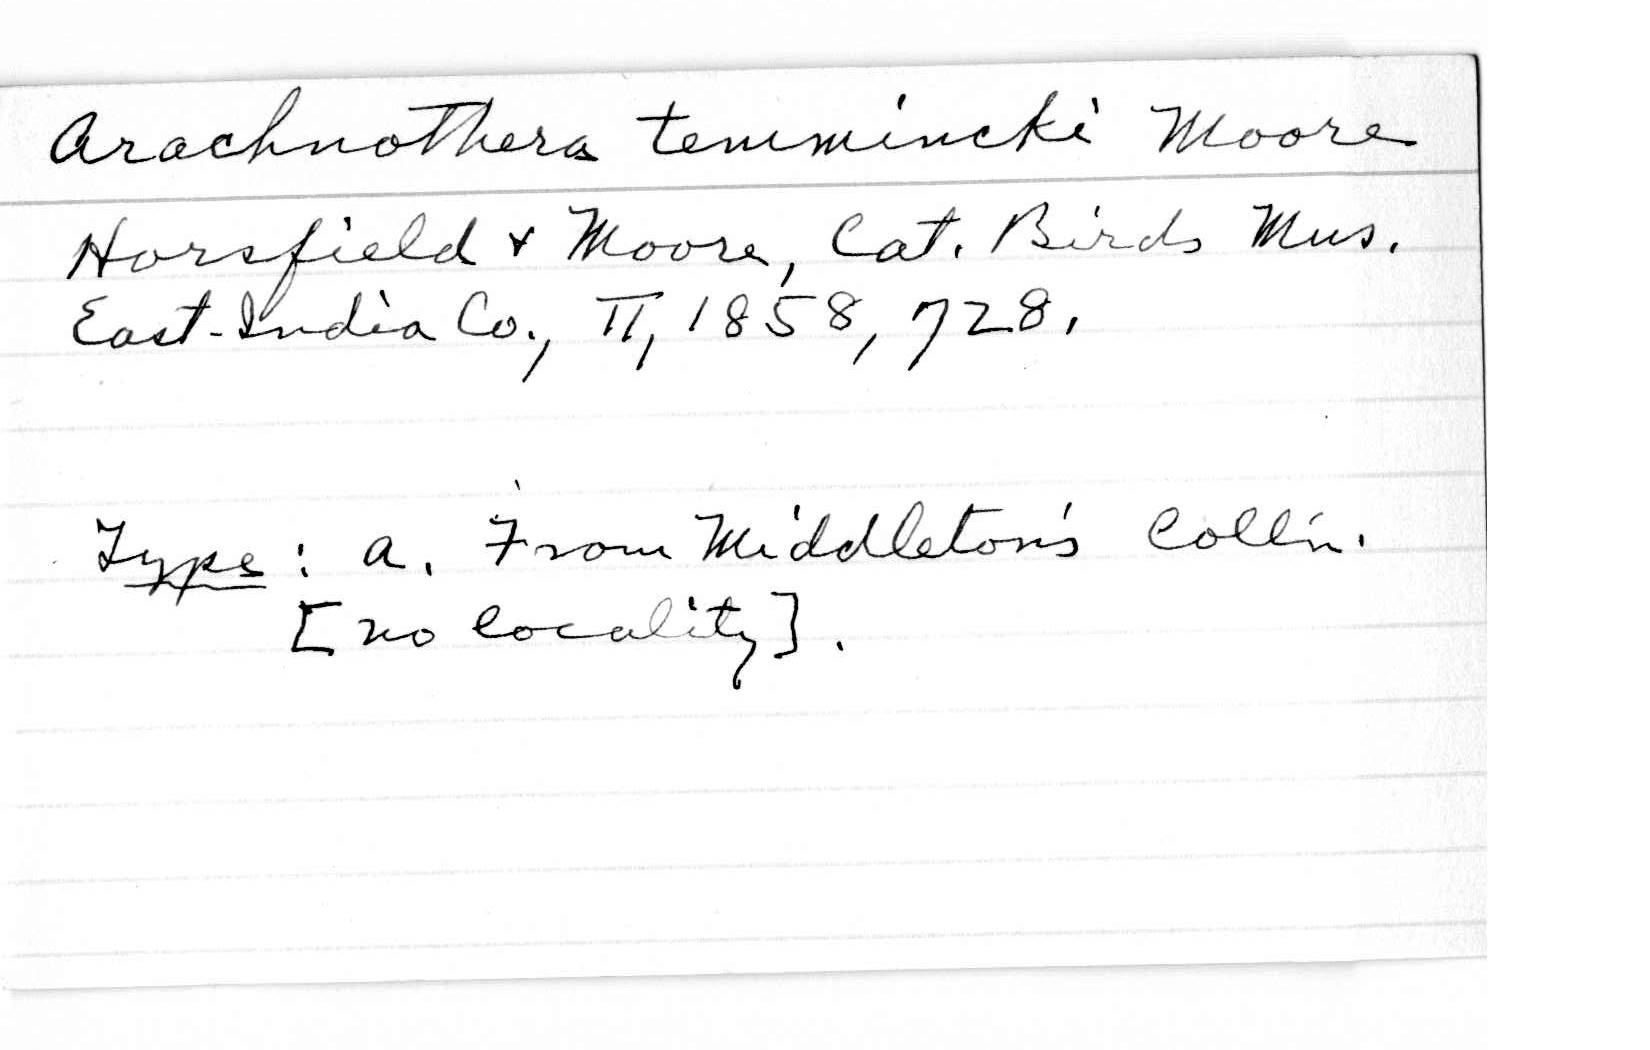 Arachnothera temmincki Moore
Horsfield & Moore, Cat. Birds Mus.
East-India Co., II, 1858, 728.
Type: a. From Middleton's Coll'n.
[no locality].